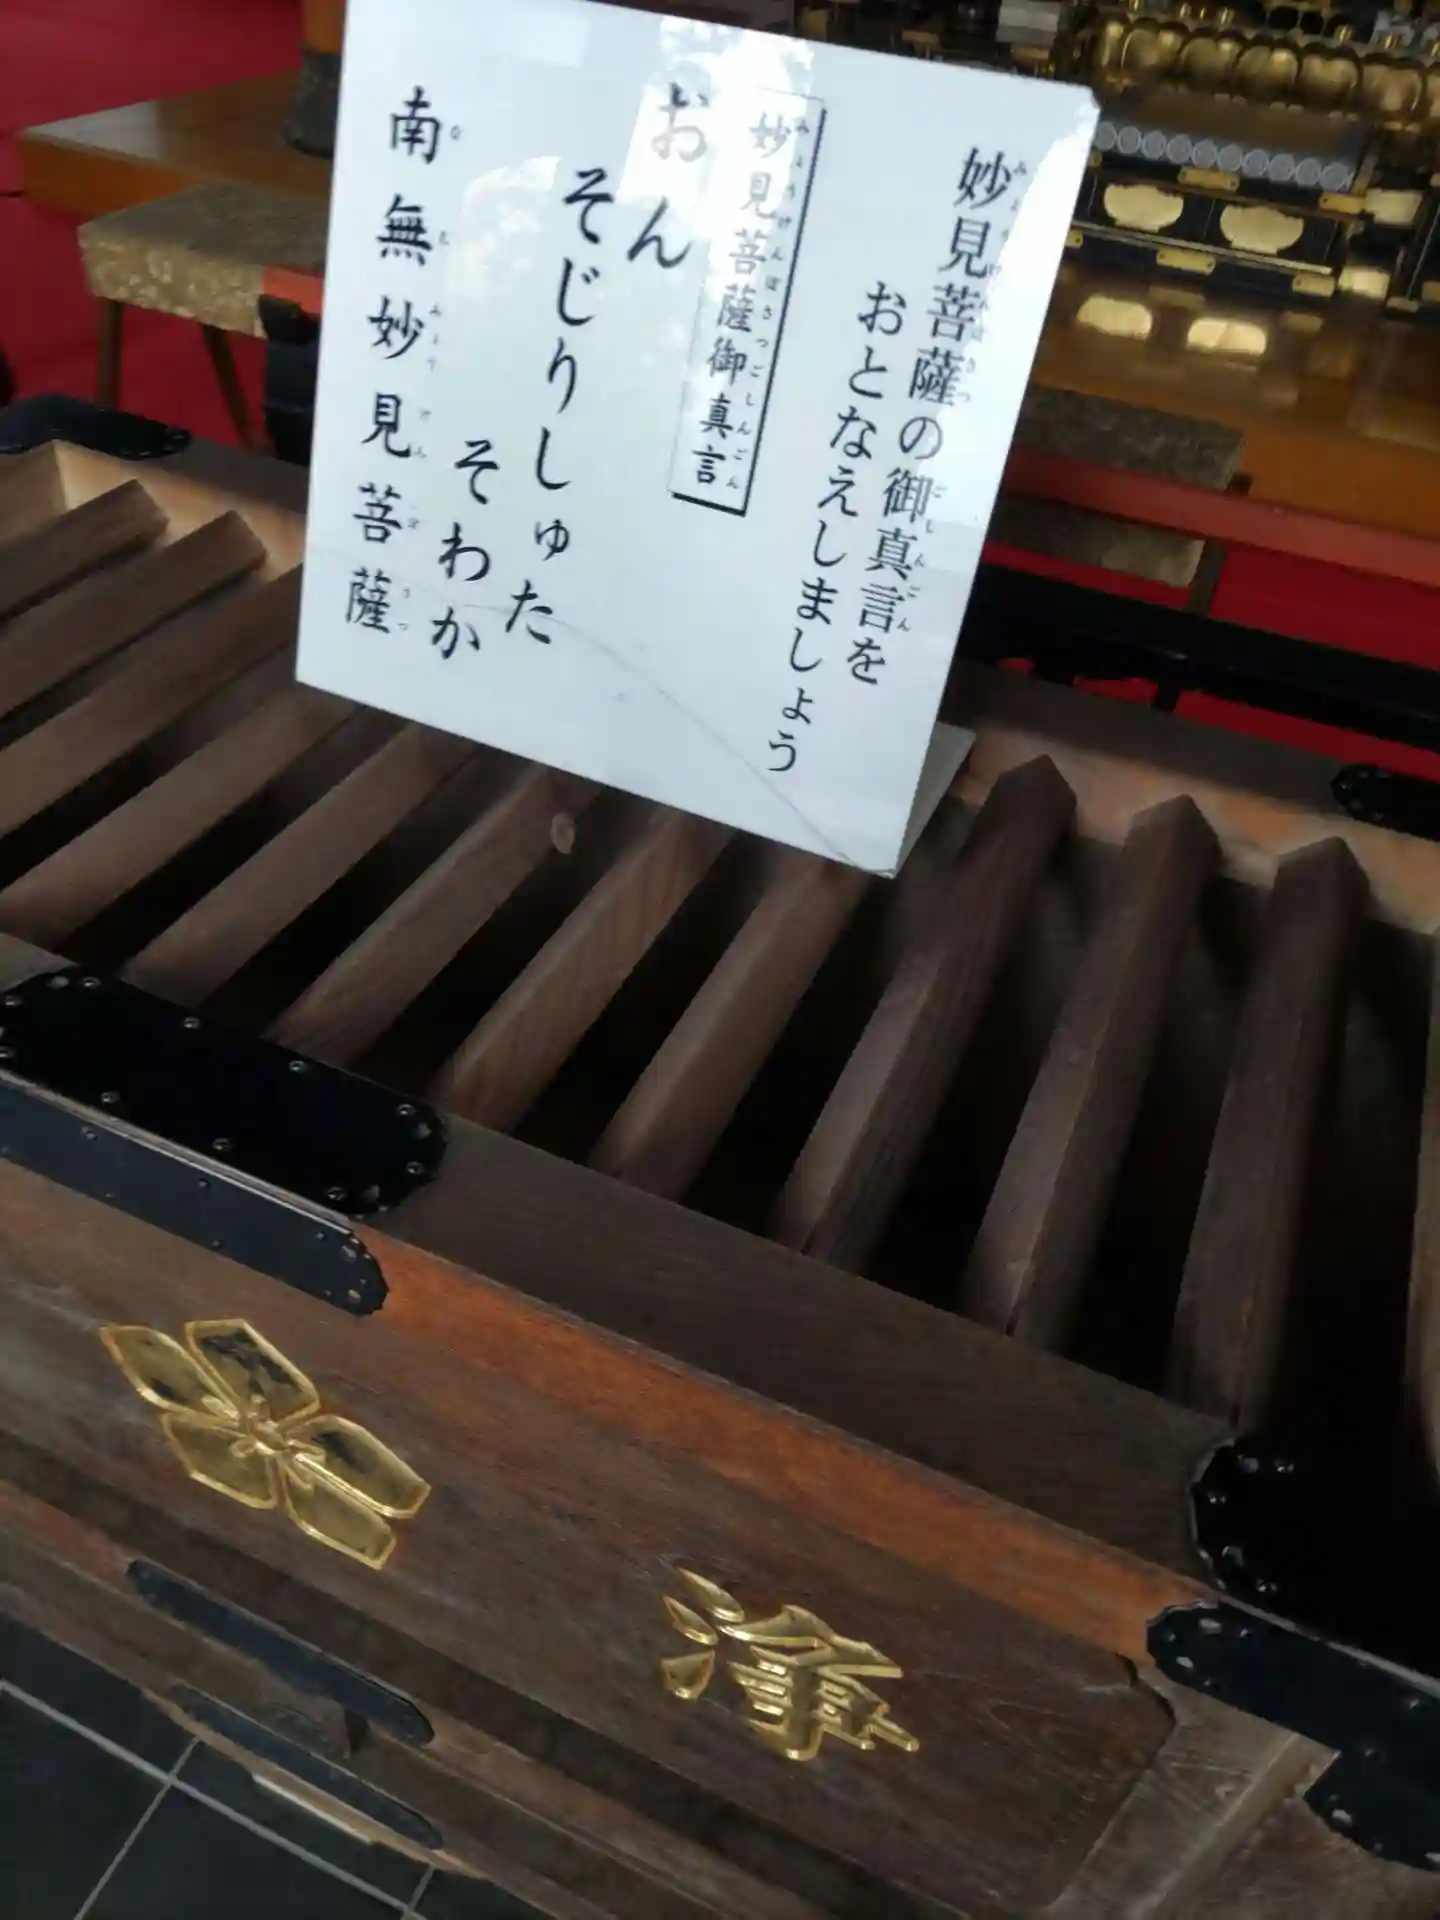 妙見菩薩の御真言を
おとなえしましょう
妙見菩薩御真言
おん
そじりしゅた
そわか
南無妙見菩薩
淨